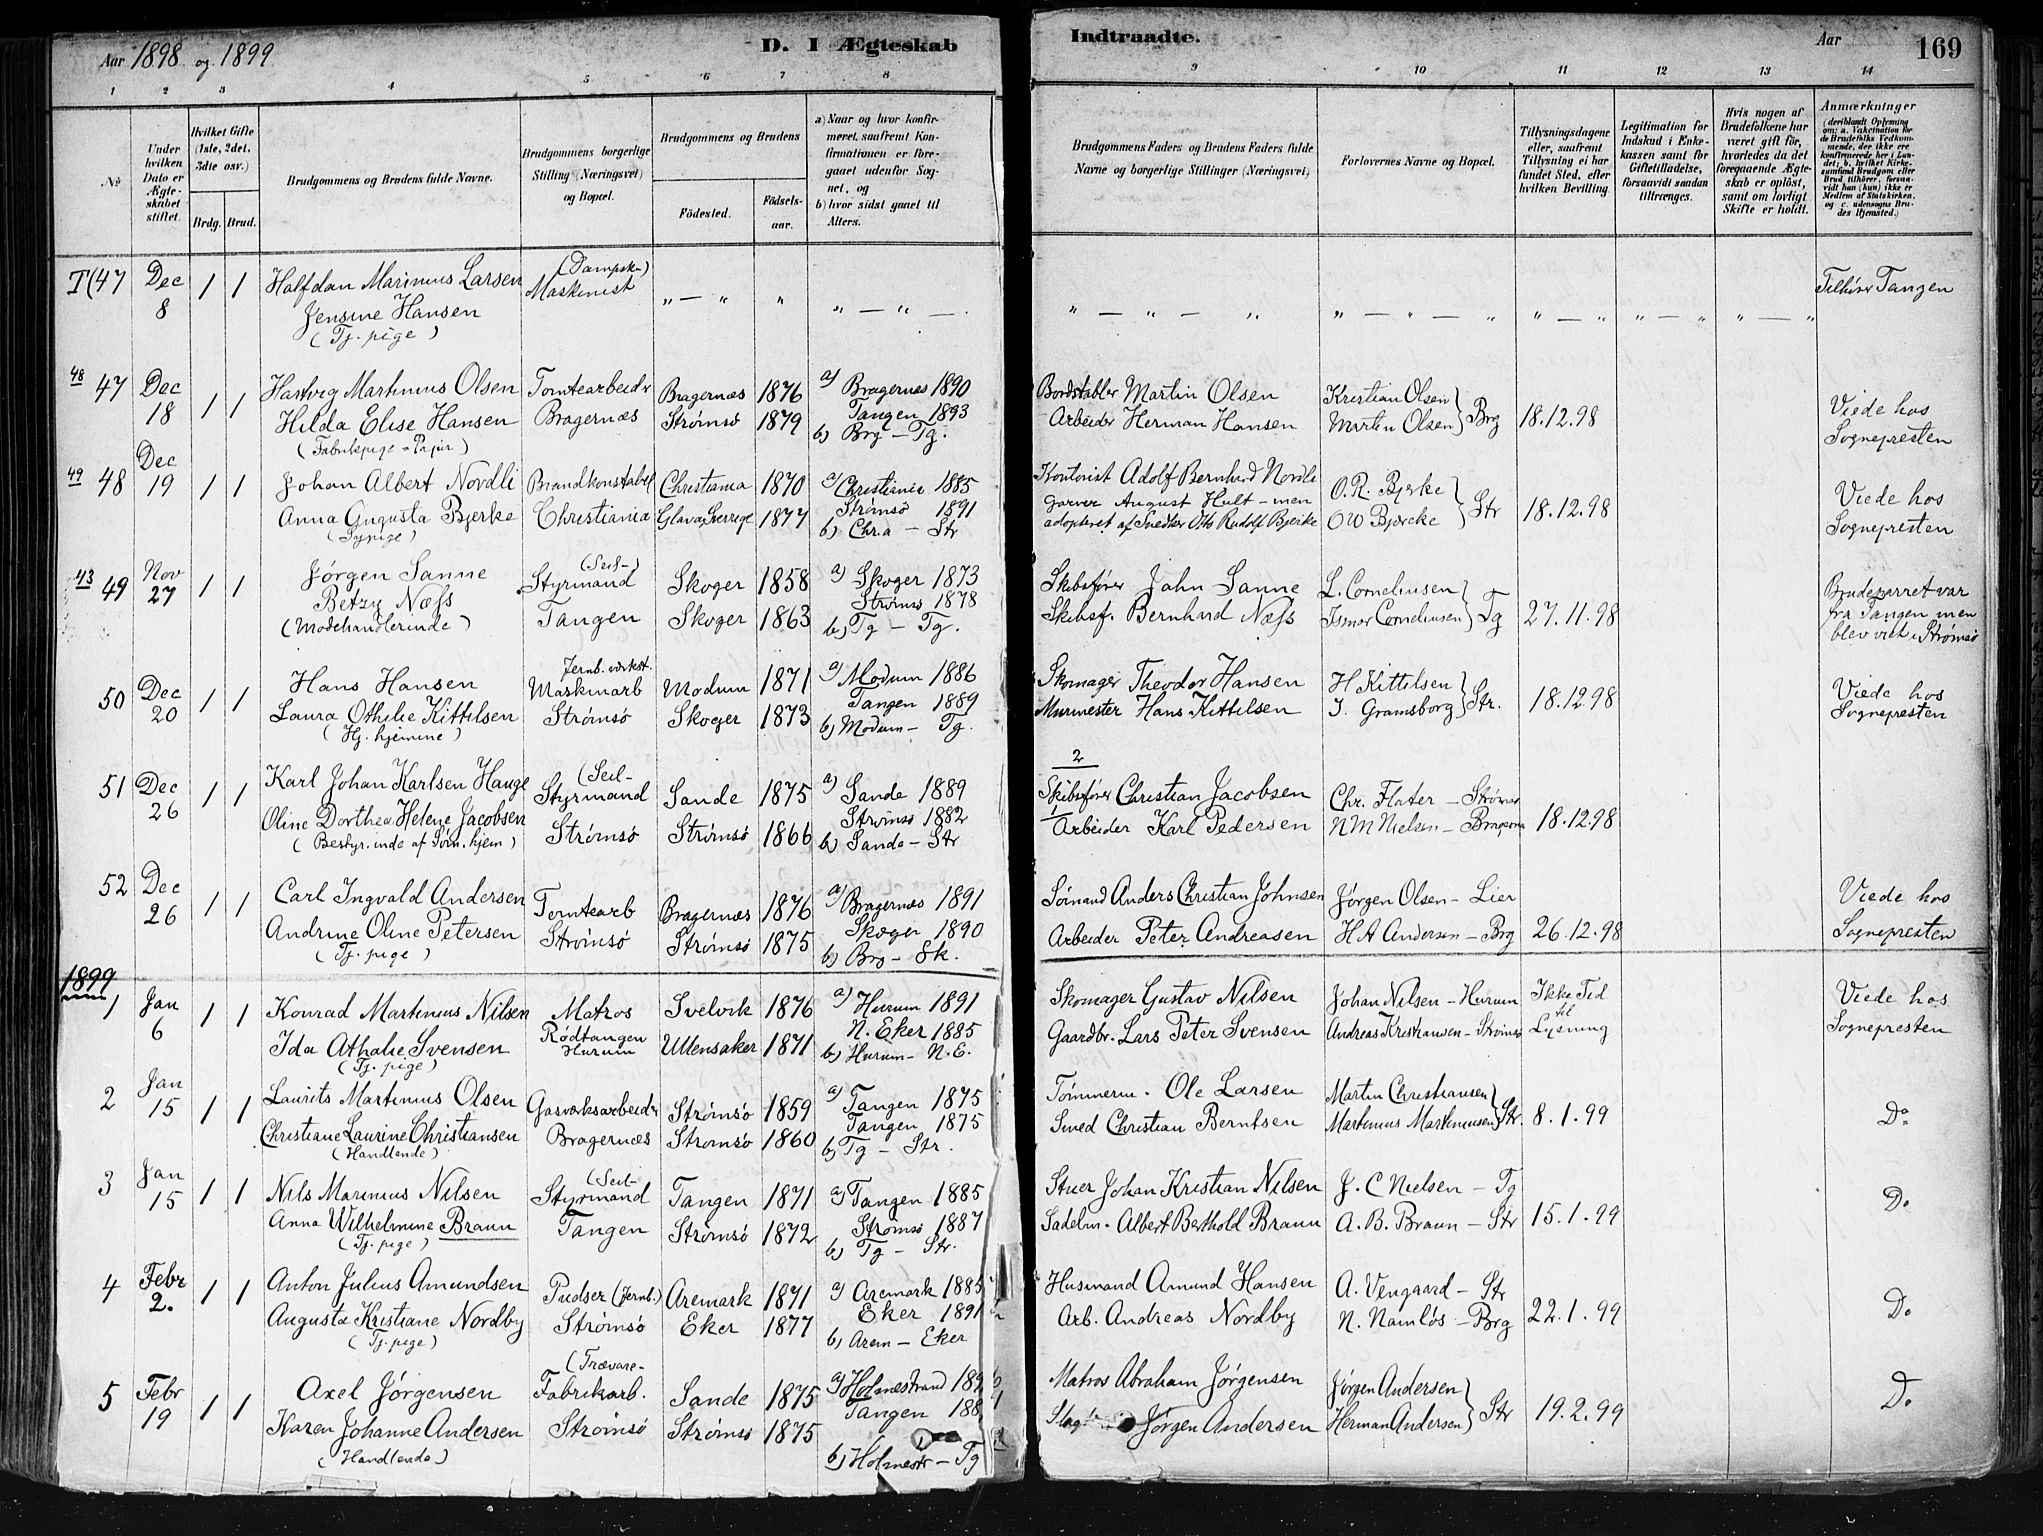 Aar 1898 og 1899
D. I Ægteskab
Indtraadte.
Aar
169
1 2 3 4 5 6 7 8 9 10 11 12 13 14
No
Under hvilken Dato er Ægteskabet stiftet.
Hvilket Gifte (1ste, 2det, 3die osv.)
Brdg. Brud.
Brudgommens og Brudens fulde Navne.
Brudgommens borgerlige Stilling (Næringsvei) og Bopæl.
Brudgommens og Brudens
Födested.
Födselsaar.
a) Naar og hvor konfirmeret, saafremt Konfirmationen er foregaaet udenfor Sognet, og
b) hvor sidst gaaet til Alters.
Brudgommens Faders og Brudens Faders fulde Navne og borgerlige Stillinger (Næringsvei)
Forlovernes Navne og Bopæl.
Tillysningsdagene eller, saafremt Tillysning ei har fundet Sted, efter hvilken Bevilling.
Legitimation for Indskud i Enkekassen samt for Giftetilladelse, forsaavidt saadan tiltrænges.
Hvis nogen af Brudefolkene har været gift för, hvorledes da det foregaaende Ægteskab er oplöst, samt om lovligt Skifte er holdt.
Anmærkninger (deriblandt Oplysning om: a. Vakcination for de Brudefolks Vedkommende, der ikke ere konfirmerede her i Landet; b. hvilket Kirkesamfund Brudgom eller Brud tilhörer, forsaavidt han (hun) ikke er Medlem af Statskirken, og c. udensogns Brudes Hjemsted.)
T(47 Dec 8 1 1 Halfdan Marinius Larsen (Dampsk-) Maskinist „ — „ „ „ — „ — „ — „ — „ „ — „ — „ „ — „ „ — „ „ — „ Tilhører Tangen
Jensine Hansen
(Tj. pige)
48 47 Dec 18 1 1 Hartvig Martinius Olsen Tomtearbeider Bragernæs 1876 a) Bragernæs 1890 Bordstabler Martin Olsen Kristian Olsen Brg 18.12.98 Viede hos
Hilda Elise Hansen Bragernæs Strømsø 1879 Tangen 1893 Arbeider Herman Hansen Martin Olsen Sognepresten
(Fabrikpige - Papir) b) Brg - Tg.
49 48 Dec 19 1 1 Johan Albert Nordli Brandkonstabel Christiania 1870 a) Christiania 1885 Kontorist Adolf Bernhard Nordli O.R. Bjerke Str 18.12.98 Viede hos
Anna Augusta Bjerke Christiania Glava Sverige 1877 Strømsø 1891 Garver August Hult - men O W Bjercke Sognepresten
(Sypige) b) Chr.a - Str adopteret af Snedker Otto Rudolf Bjerke
43 49 Nov 27 1 1 Jørgen Sanne (Seil-) Styrmand Skoger 1858 a) Skoger 1873 Skibsfører John Sanne L. Corneliusen Tg 27.11.98 Brudeparret var
Betzy Næss Tangen Skoger 1863 Strømsø 1878 Skibsf. Bernhard Næss Ismar Corneliusen fra Tangen men
(Modehandlerinde) b) Tg - Tg. blev viet i Strømsø
50 Dec 20 1 1 Hans Hansen Jernb. værkst. Maskinarb Modum 1871 a) Modum 1886 Skomager Theodor Hansen H Kittilsen Str. 18.12.98 Viede hos
Laura Othilie Kittilsen Strømsø Skoger 1873 Tangen 1889 Murmester Hans Kittilsen J. Gramsborg Sognepresten
(Hj. hjemme) b) Modum - Tg.
51 Dec 26 1 1 Karl Johan Karlsen Hauge (Seil- Styrmand Sande 1875 a) Sande 1889 2 Skibsfører Christian Jacobsen Chr. Flater - Strømsø 18.12.98
Oline Dorthea Helene Jacobsen Strømsø Strømsø 1866 Strømsø 1882 1 Arbeider Karl Pedersen N M Nielsen - Bragernæs
(Bestyr. inde af Søm. hjem) b) Sande - Str
52 Dec 26 1 1 Carl Ingvald Andersen Tomtearb Bragernæs 1876 a) Bragernæs 1891 Sømand Anders Christian Johnsen Jørgen Olsen - Lier 26.12.98 Viede hos
Andrine Oline Petersen Strømsø Strømsø 1875 Skoger 1890 Arbeider Peter Andreasen H A Andersen - Brg Sognepresten
(Tj. pige) b) Brg - Sk.
1899
1 Jan 6 1 1 Konrad Martinius Nilsen Matros Svelvik 1876 a) Hurum 1891 Skomager Gustav Nilsen Johan Nilsen - Hurum Ikke Tid til Lysning Viede hos
Ida Athalie Svensen Rødtangen Hurum Ullensaker 1871 N. Eker 1885 Gaardbr. Lars Peter Svensen Andreas Kristiansen - Strømsø Sognepresten
(Tj. pige) b) Hurum - N.E.
2 Jan 15 1 1 Laurits Martinius Olsen Gasværksarbeider Strømsø 1859 a) Tangen 1875 Tømmerm. Ole Larsen Martin Christiansen Str. 8.1.99 Do
Christiane Laurine Christiansen Bragernæs Strømsø 1860 Tangen 1875 Smed Christian Berntsen Martinius Martiniussen
(Handlende) b) Tg - Str.
3 Jan 15 1 1 Nils Marinius Nilsen (Seil- Styrmand Tangen 1871 a) Tangen 1885 Stuer Johan Kristian Nilsen J. C Nielsen - Tg 15.1.99 Do
Anna Wilhelmine Braun Tangen Strømsø 1872 Strømsø 1887 Sadelm. Albert Berthold Braun A. B. Braun - Str
(Tj. pige) b) Tg - Str.
4 Febr 2. 1 1 Anton Julius Amundsen Pudser (Jernb.) Aremark 1871 a) Aremark 1885 Husmand Amund Hansen A. Vengaard - Str 22.1.99 Do
Augusta Kristiane Nordby Strømsø Eker 1877 Eker 1891 Arb. Andreas Nordby N. Namløs - Brg
(Tj. pige) b) Arem - Eker
5 Febr 19 1 1 Axel Jørgensen (Trævare- Fabrikarb. Sande 1875 a) Holmestrand 189 Matros Abraham Jørgensen Jørgen Andersen Str 19.2.99 Do
Karen Johanne Andersen Strømsø Strømsø 1875 Tangen 188 Jørgen Andersen Herman Andersen
(Handlende) b) Holmestr - Tg